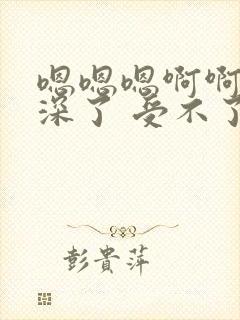 嗯嗯嗯啊啊
深了 受不了
彭貴萍